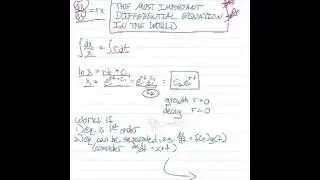 dx/dt = rx THE MOST IMPORTANT
DIFFERENTIAL EQUATION
IN THE WORLD
∫ dx/x = ∫ r dt
ln x = rt + C₁
x = e^(rt+C₁) = e^(rt) e^(C₁) = C₂e^(rt)
C₂
growth r>0
decay r<0
Works if
1) eq. is 1st order
2) eq. can be separated, e.g. dx/dt = f(x)g(t)
(consider dx/dt = x+t)